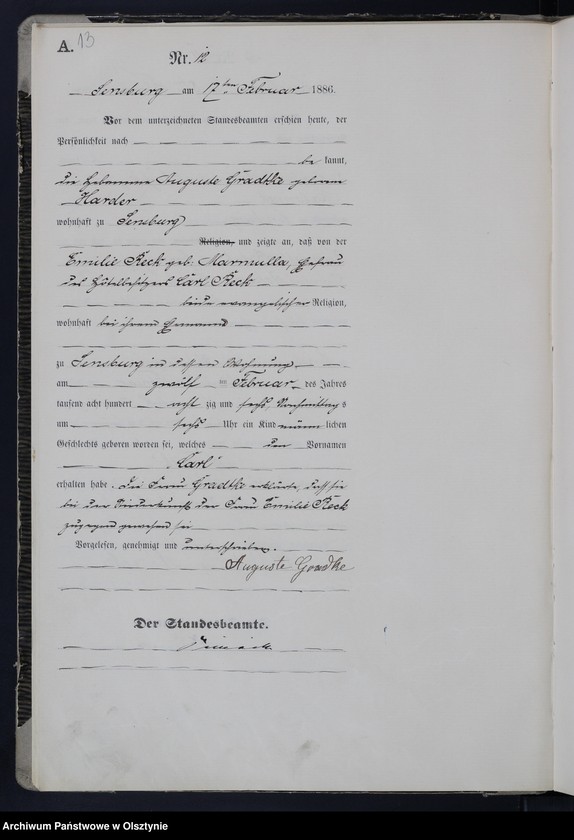 A. 13
Nr. 12
Sensburg am 17ten Februar 1886.
Vor dem unterzeichneten Standesbeamten erschien heute, der
Persönlichkeit nach
be kannt,
die Hebamme Auguste Gradtke geborene
Harder
wohnhaft zu Sensburg
Religion, und zeigte an, daß von der
Emilie Reck geb. Marmulla, Ehefrau
des Hôtelbesitzers Carl Reck
beide evangelischer Religion,
wohnhaft bei ihrem Ehemann
zu Sensburg in dessen Wohnung
am zwölf ten Februar des Jahres
tausend acht hundert acht zig und sechs Nachmittag s
um sechs Uhr ein Kind männ lichen
Geschlechts geboren worden sei, welches den Vornamen
Carl
erhalten habe. Die Frau Gradtke erklärte, daß sie
bei der Niederkunft der Frau Emilie Reck
zugegen gewesen sei
Vorgelesen, genehmigt und unterschrieben.
Auguste Gradtke
Der Standesbeamte.
Archiwum Państwowe w Olsztynie